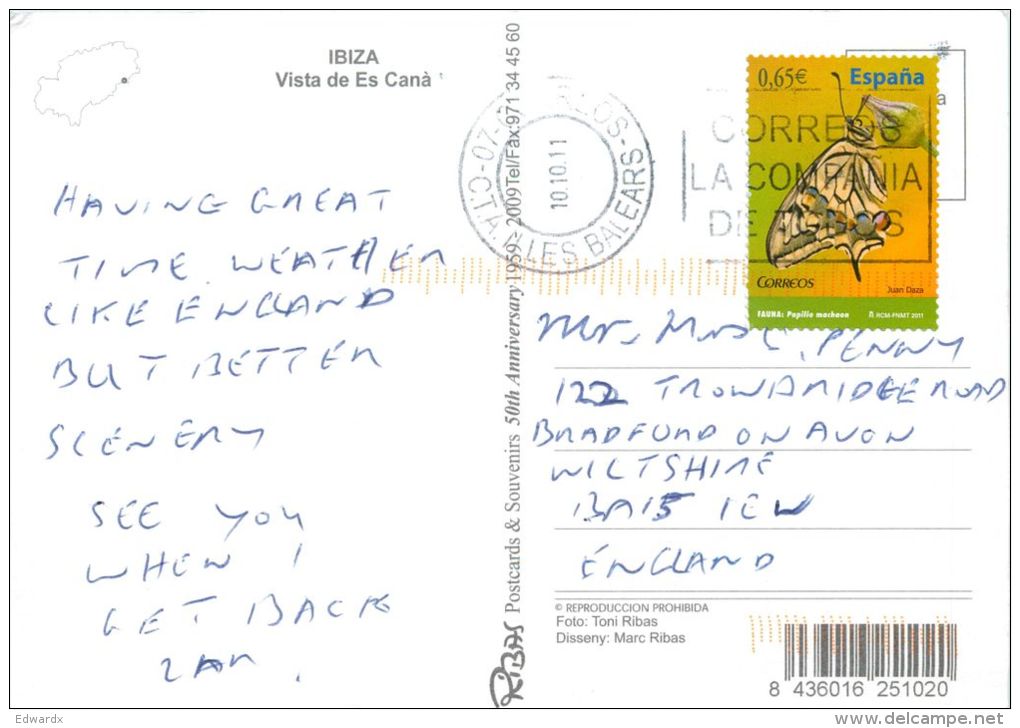 IBIZA
Vista de Es Canà
HAVING GREAT
TIME WEATHER
LIKE ENGLAND
BUT BETTER
SCENERY
SEE YOU
WHEN I
GET BACK
IAN.
RIBAS Postcards & Souvenirs 50th Anniversary 1959 - 2009 Tel/Fax:971 34 45 60
10.10.11
ILLES BALEARS
CORREOS
LA COMPAÑIA
DE
0,65€ España
CORREOS
Juan Daza
FAUNA: Papilio machaon RCM-FNMT 2011
Mr. Mrs PENNY
122 TROWBRIDGE ROAD
BRADFORD ON AVON
WILTSHIRE
BA15 1EW
ENGLAND
© REPRODUCCION PROHIBIDA
Foto: Toni Ribas
Disseny: Marc Ribas
8 436016 251020
Edwardx
www.delcampe.net